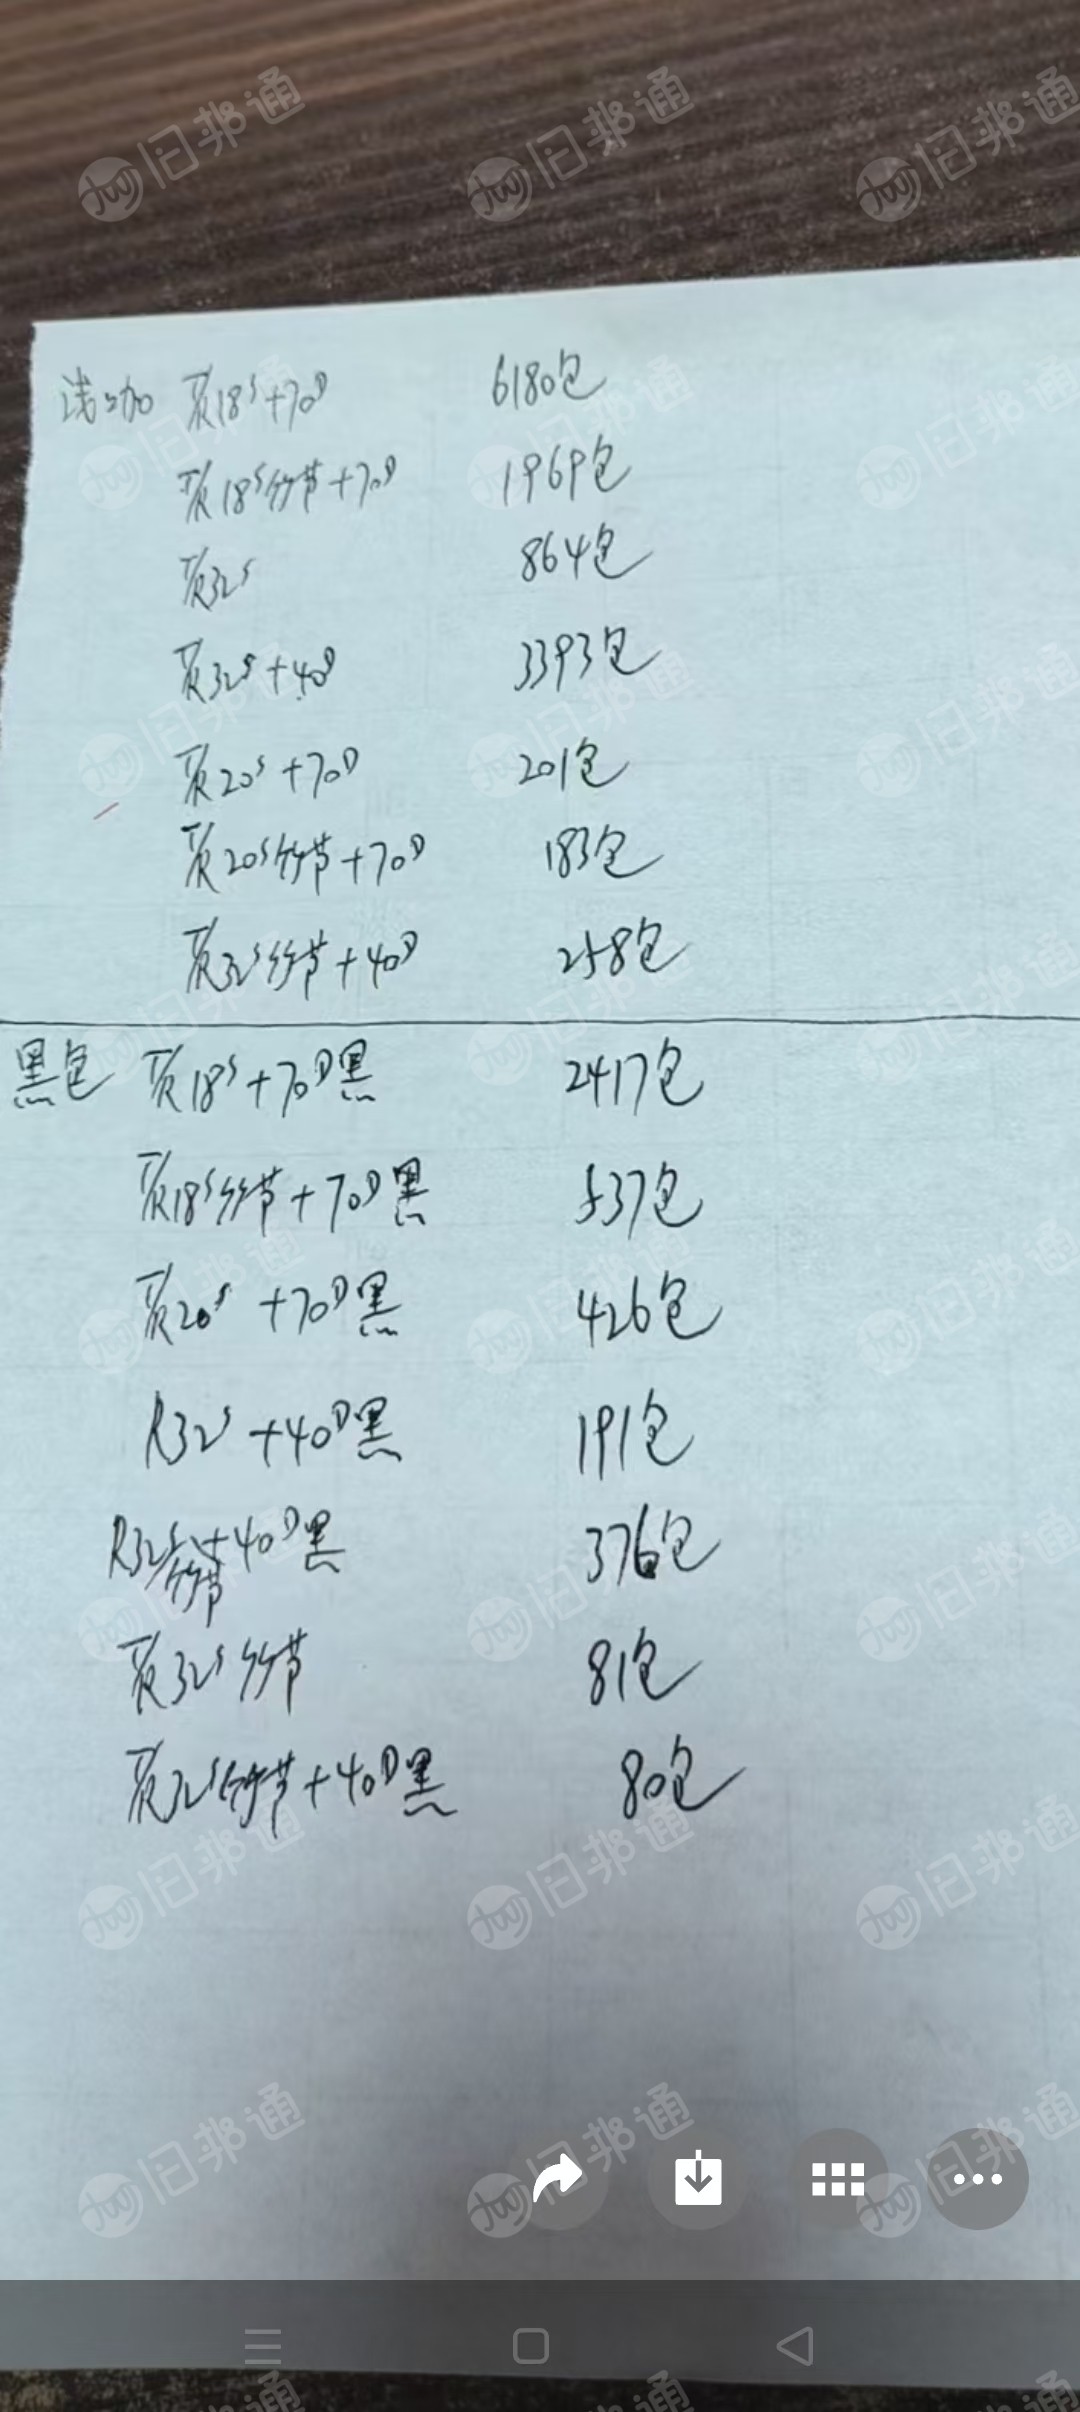 浅加 灰18S+70D 6180包
灰18S竹节+70D 1969包
灰32S 864包
灰32S+40D 3393包
灰20S+70D 201包
灰20S竹节+70D 183包
灰32S竹节+40D 258包
黑包 灰18S+70D黑 2417包
灰18S竹节+70D黑 537包
灰20S +70D黑 426包
R32S +40D黑 191包
R32S竹节+40D黑 376包
灰32S竹节 81包
灰32S竹节+40D黑 80包
旧邦通